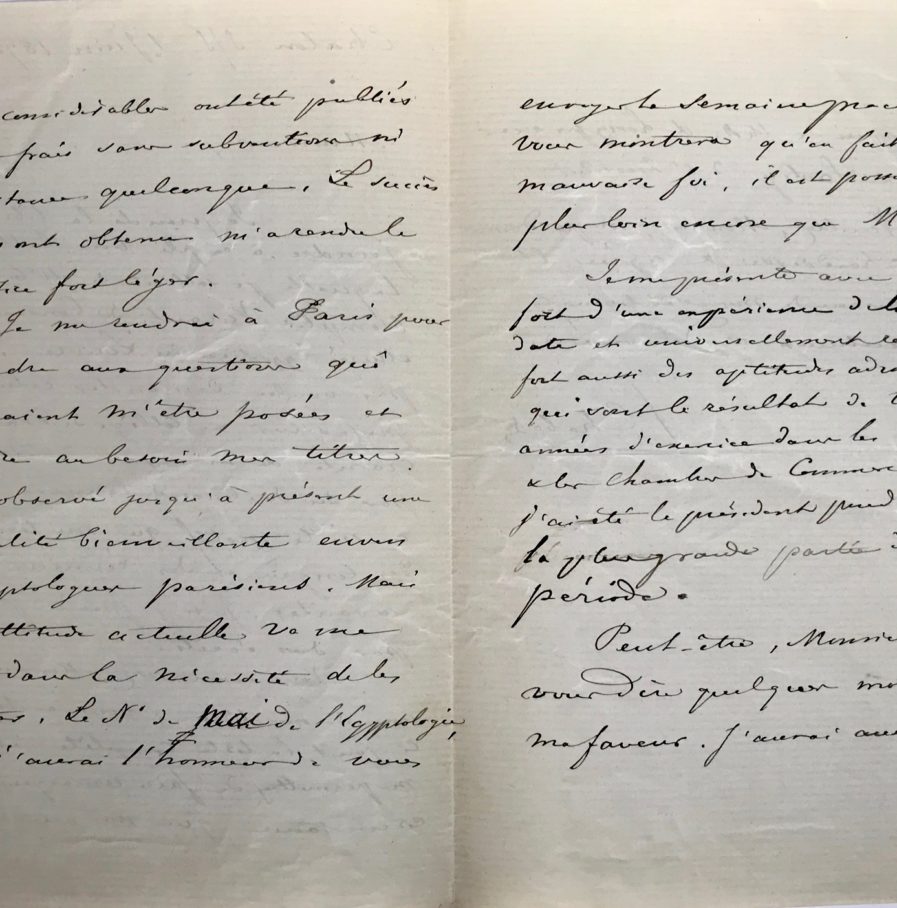 considérables ont été publiés
frais sans subvention ni
tance quelconque. Le succès
ont obtenu m'a rendu le
fice fort léger.
Je me rendrai à Paris pour
dre aux questions qui
raient m'être posées et
re au besoin mes titres.
observé jusqu'à présent une
alité bienveillante envers
yptologues parisiens. Mais
attitude actuelle va me
dans la nécessité de les
Le No de mai de l'Egyptologie,
j'aurai l'honneur de vous
envoyer la semaine proc
vous montrera qu'en fait
mauvaise foi, il est poss
plus loin encore que M
Je me présente avec
fort d'une expérience de l
date et universellement re
fort aussi des aptitudes adm
qui sont le résultat de
années d'exercice dans les
& les Chambres de Commerc
j'ai été le président pend
la plus grande partie
période.
Peut-être, Monsieu
vous dire quelques mo
ma faveur. J'aurai au